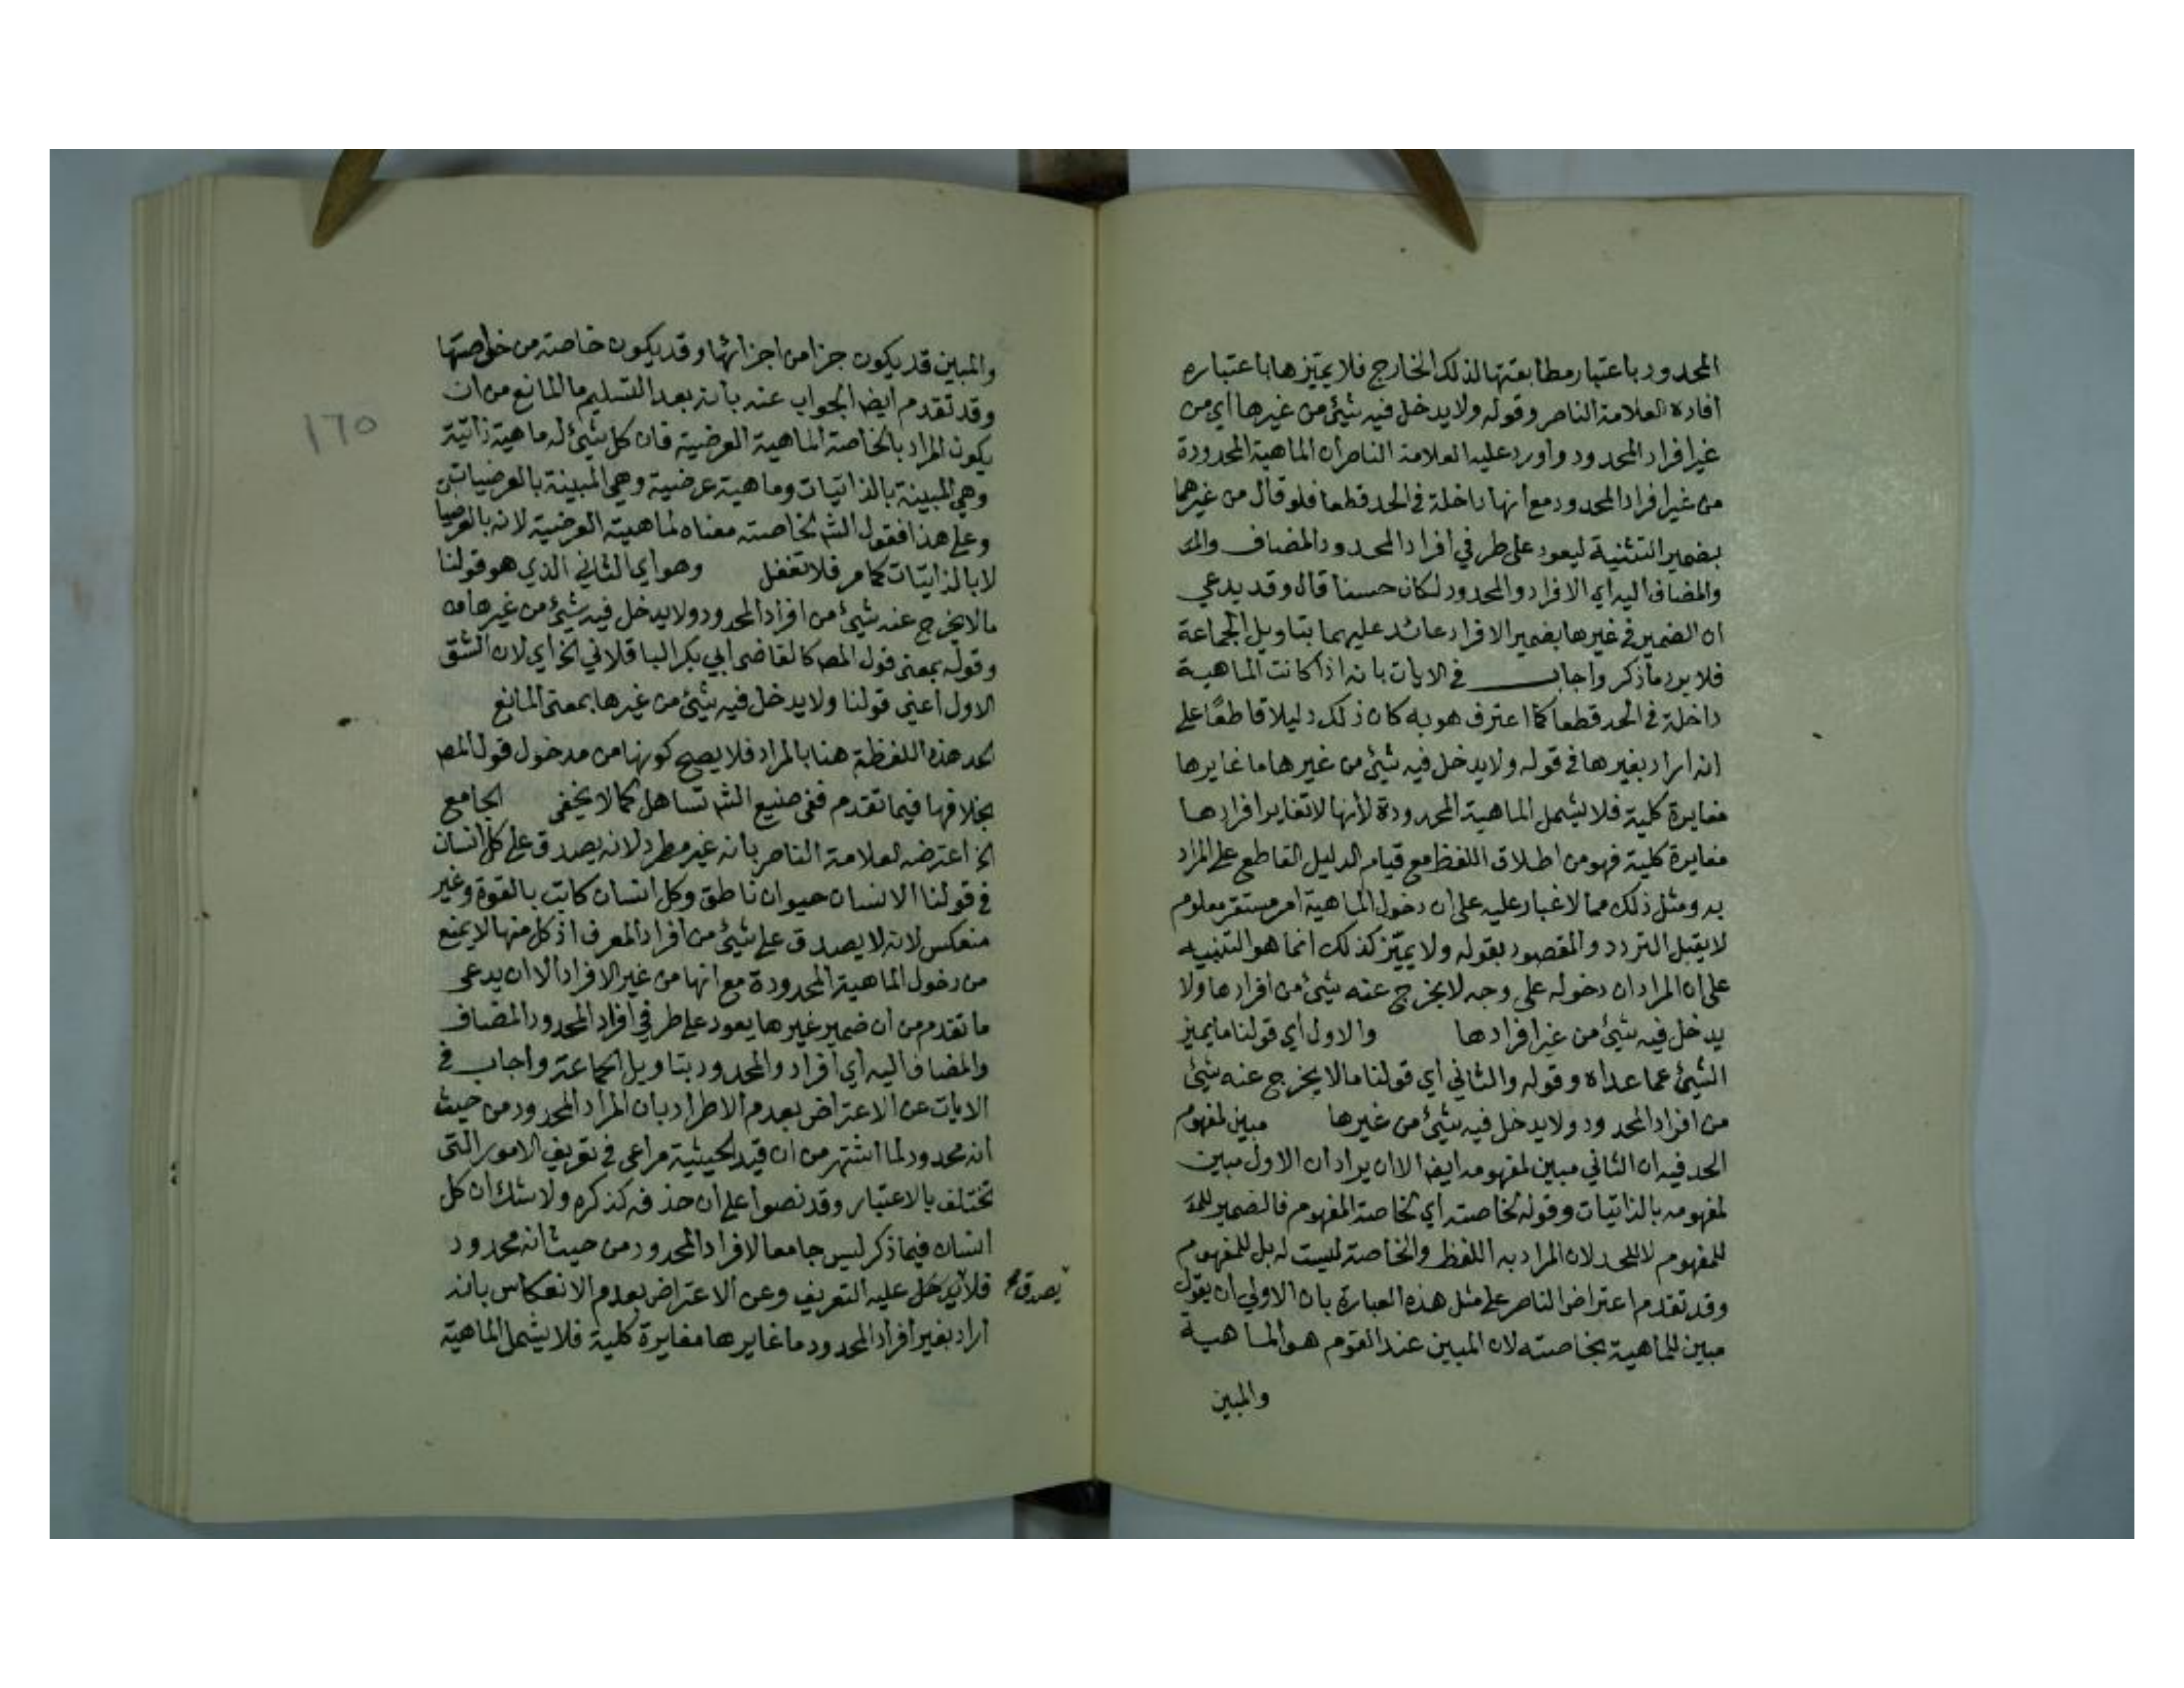 المحدود باعتبار مطابقتها لذلك الخارج فلا يميزها باعتباره
أفاده العلامة الناصر وقوله ولا يدخل فيه شيئ من غيرها أي من
غير أفراد المحدود وأورد عليه العلامة الناصر أن الماهية المحدودة
من غير أفراد المحدود مع أنها داخلة في الحد قطعا فلو قال من غيرهما
بضمير التثنية ليعود على طرفي افراد المحدود المضاف والمـ
والمضاف اليه اي الافراد والمحدود لكان حسنا قال وقد يدعي
ان الضمير في غيرها بضمير الافراد عائد عليهما بتاويل الجماعة
فلا يرد ما ذكر واجاب في الايات بانه اذا كانت الماهية
داخلة في الحد قطعا كما اعترف هو به كان ذلك دليلا قاطعًا على
انه اراد بغيرها في قوله ولا يدخل فيه شيئ من غيرها ما غايرها
مغايرة كلية فلا يشمل الماهية المحدودة لأنها لا تغاير افرادها
مغايرة كلية فهو من اطلاق اللفظ مع قيام الدليل القاطع على المراد
به ومثل ذلك مما لا غبار عليه على ان دخول الماهية أمر مستقر معلوم
لا يقبل التردد والمقصود بقوله ولا يميز كذلك انما هو التنبيه
على ان المراد ان دخوله على وجه لا يخرج عنه شيئ من أفرادها ولا
يدخل فيه شيئ من غير افرادها والاول أي قولنا ما يميز
الشيئ عما عداه وقوله والثاني أي قولنا ما لا يخرج عنه شيئ
من افراد المحدود ولا يدخل فيه شيئ من غيرها مبين لمفهوم
الحد فيه ان الثاني مبين لمفهومه ايضا الا ان يراد ان الاول مبين
لمفهومه بالذاتيات وقوله لخاصته أي لخاصة المفهوم فالضمير للمـ
للمفهوم لا للحد لان المراد به اللفظ والخاصة ليست له بل للمفهوم
وقد تقدم اعتراض الناصر على مثل هذه العبارة بان الاولى أن يقول
مبين للماهية بخاصته لان المبين عند القوم هو الماهية
والمبين
والمبين قد يكون جزا من اجزائها وقد يكون خاصة من خواصها
وقد تقدم أيضا الجواب عنه بأنه بعد التسليم ما المانع من ان
يكون المراد بالخاصة الماهية العرضية فان كل شيئ له ماهية ذاتية
وهي المبينة بالذاتيات وماهية عرضية وهي المبينة بالعرضيات
وعلى هذا فقول الش لخاصته معناه لماهيته العرضية لانه بالعرضيا
لا بالذاتيات كما مر فلا تغفل وهو اي الثاني الذي هو قولنا
ما لا يخرج عنه شيئ من افراد المحدود ولا يدخل فيه شيئ من غيرها
وقوله بمعنى قول المص كالقاضي أبي بكر الباقلاني الخ اي لان الشق
الاول أعني قولنا ولا يدخل فيه شيئ من غيرها بمعنى المانع
الحد هذه اللفظة هنا بالمراد فلا يصح كونها من مدخول قول المص
بخلافها فيما تقدم ففي صنيع الش تساهل كما لا يخفى الجامع
الخ اعترضه العلامة الناصر بانه غير مطرد لانه يصدق على كل انسان
في قولنا الانسان حيوان ناطق وكل انسان كاتب بالقوة وغير
منعكس لانه لا يصدق على شيئ من أفراد المعرف اذ كل منها لا يمنع
من دخول الماهية المحدودة مع انها من غير الافراد الا ان يدعى
ما تقدم من ان ضمير غيرها يعود على طرفي أفراد المحدود المضاف
والمضاف اليه أي أفراد والمحدود بتاويل الجماعة وأجاب في
الايات عن الاعتراض بعدم الاطراد بان المراد المحدود من حيث
انه محدود لما اشتهر من ان قيد الحيثية مراعى في تعريف الامور التي
تختلف بالاعتبار وقد نصوا على ان حذفه كذكره ولا شك ان كل
انسان فيما ذكر ليس جامعا لافراد المحدود من حيث انه محدود
فلا يدخل عليه التعريف وعن الاعتراض بعدم الانعكاس بانه
يصدق صح
أراد بغير أفراد المحدود ما غايرها مغايرة كلية فلا يشمل الماهية
١٦٥